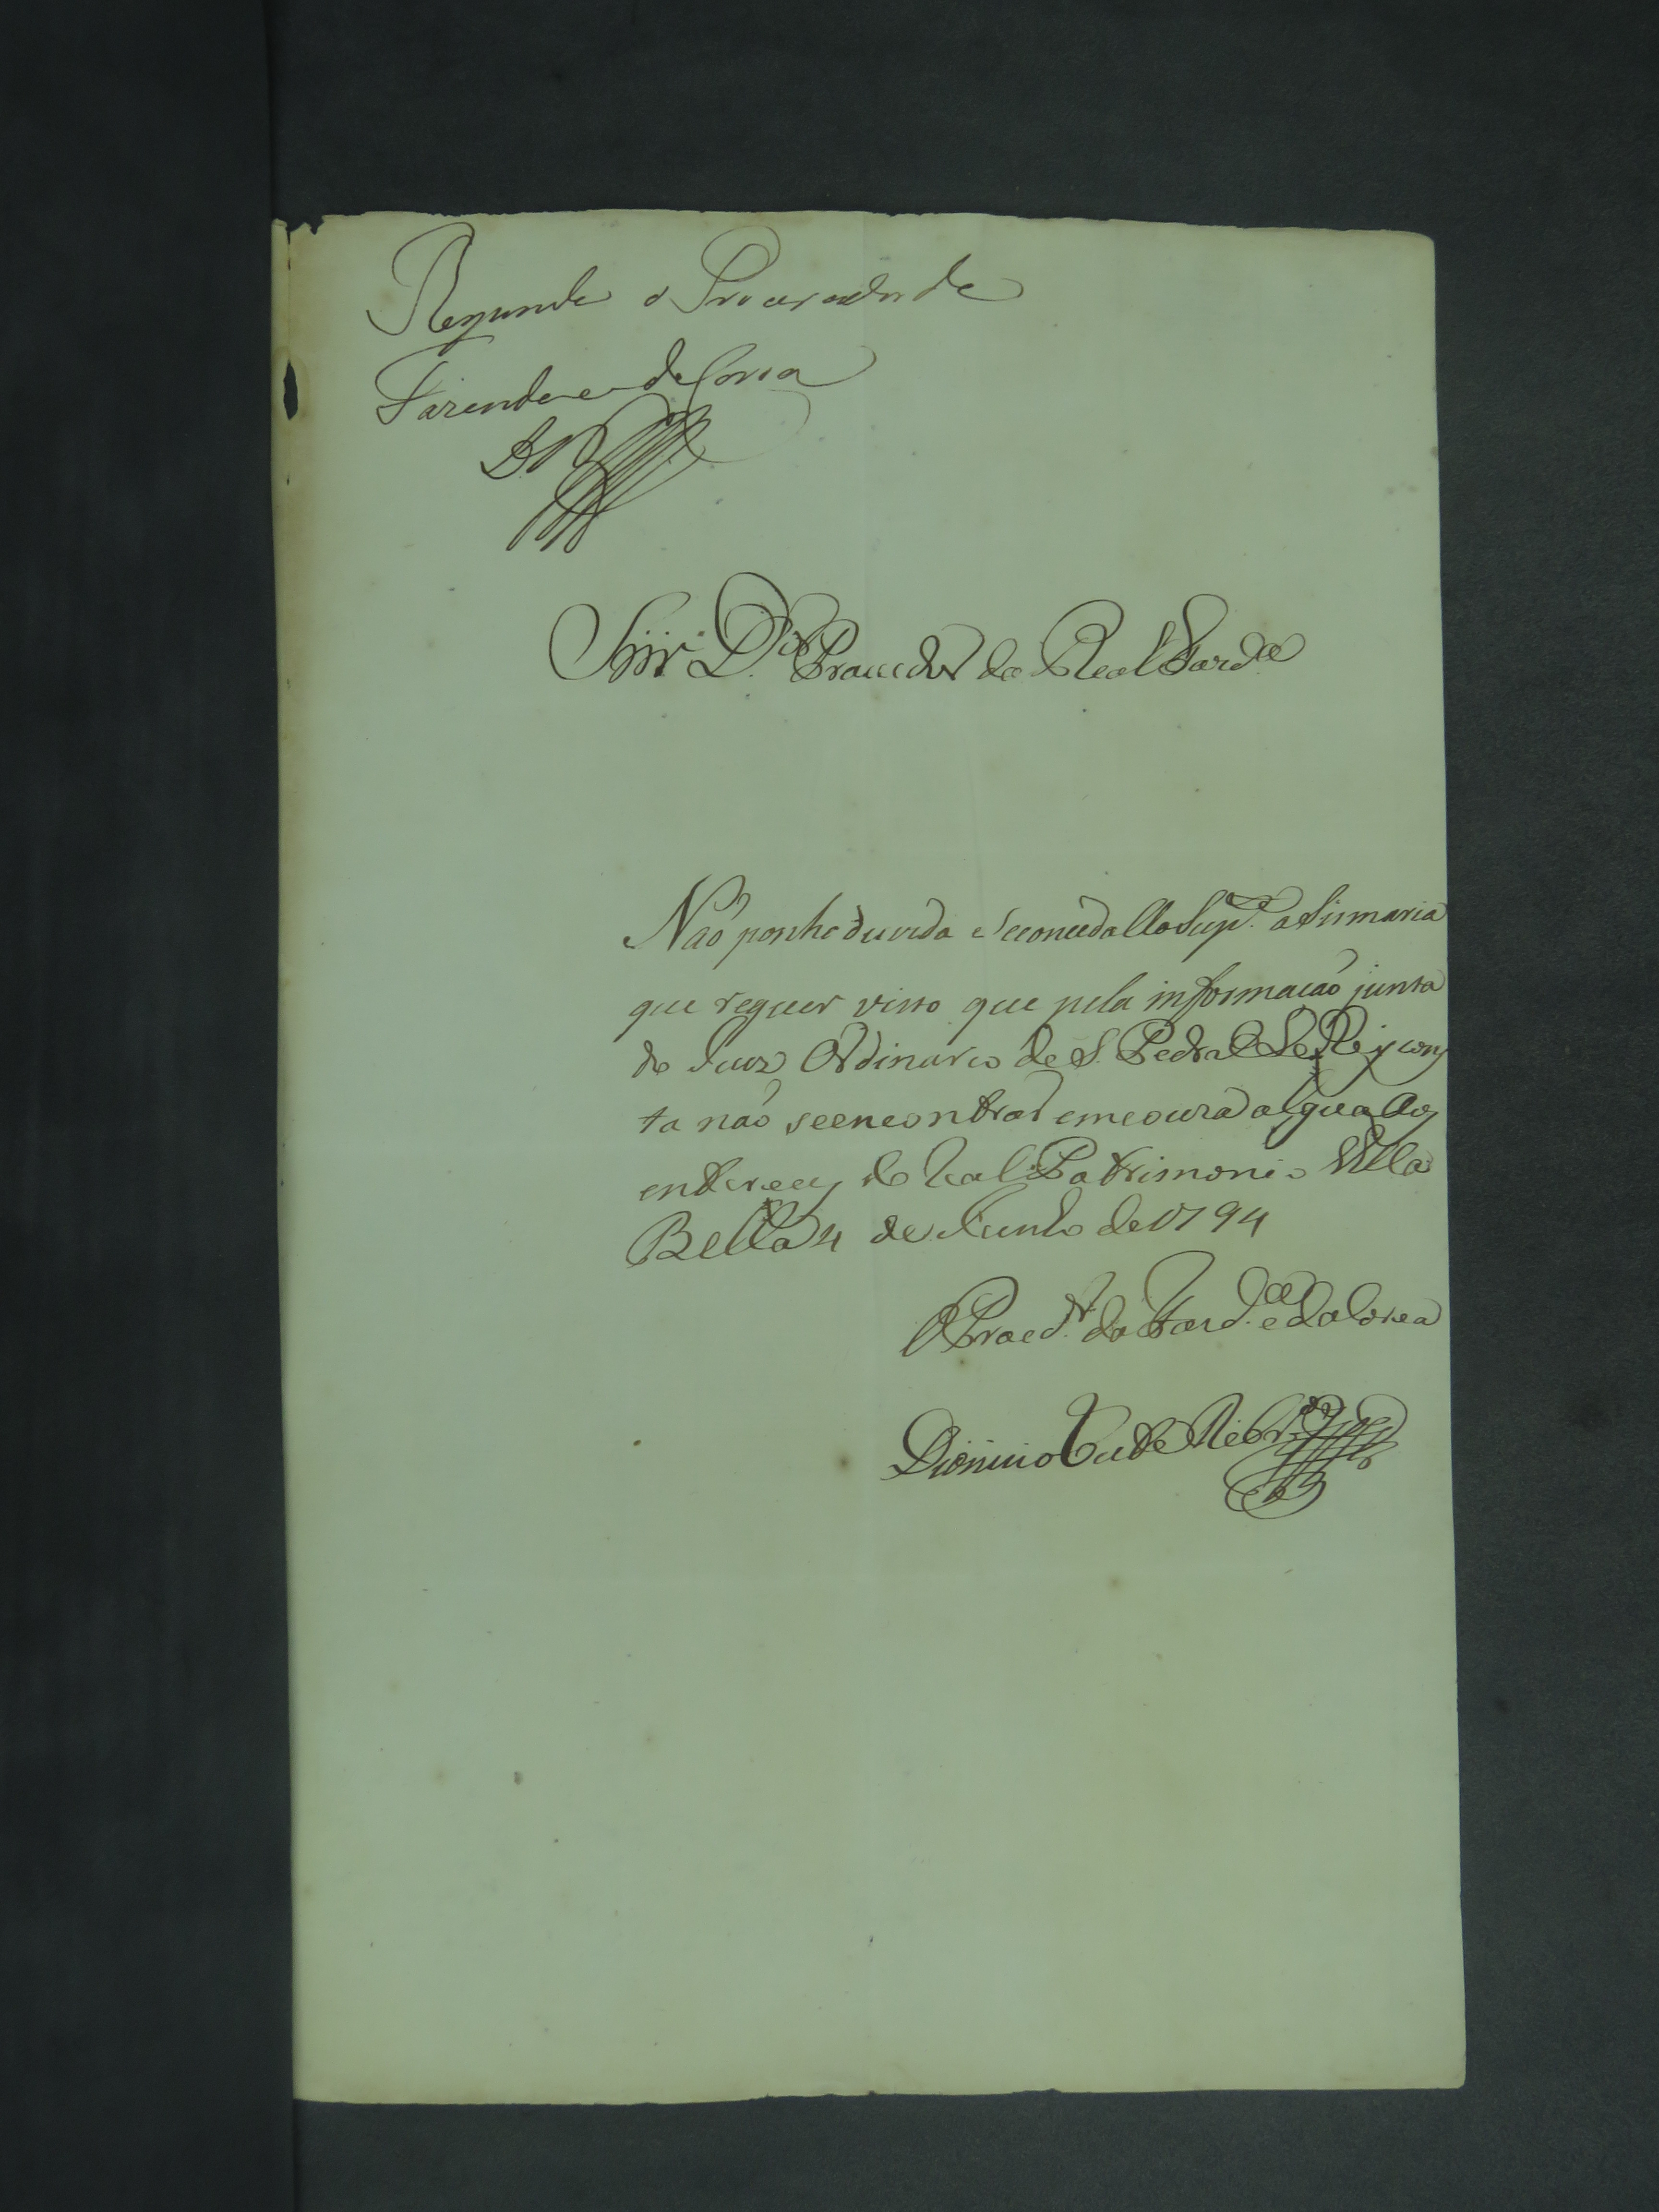 Responde o Procurador da
Fazenda e da Coroa
Snr. D.or Provedor da Real Fazd.a
Não ponho duvida e Seconceda Ao Sup.e a Sismaria
que requer visto que pela informacaõ junta
do Juiz Ordinario de S. Pedro de El Rey cons
ta naõ seencontrar em coura algua Aos
enterecej do Real Patrimonio Villa
Bella 4 de Junho de 1794
O Procd.r da Fazd.a e da Coroa
Dionizio